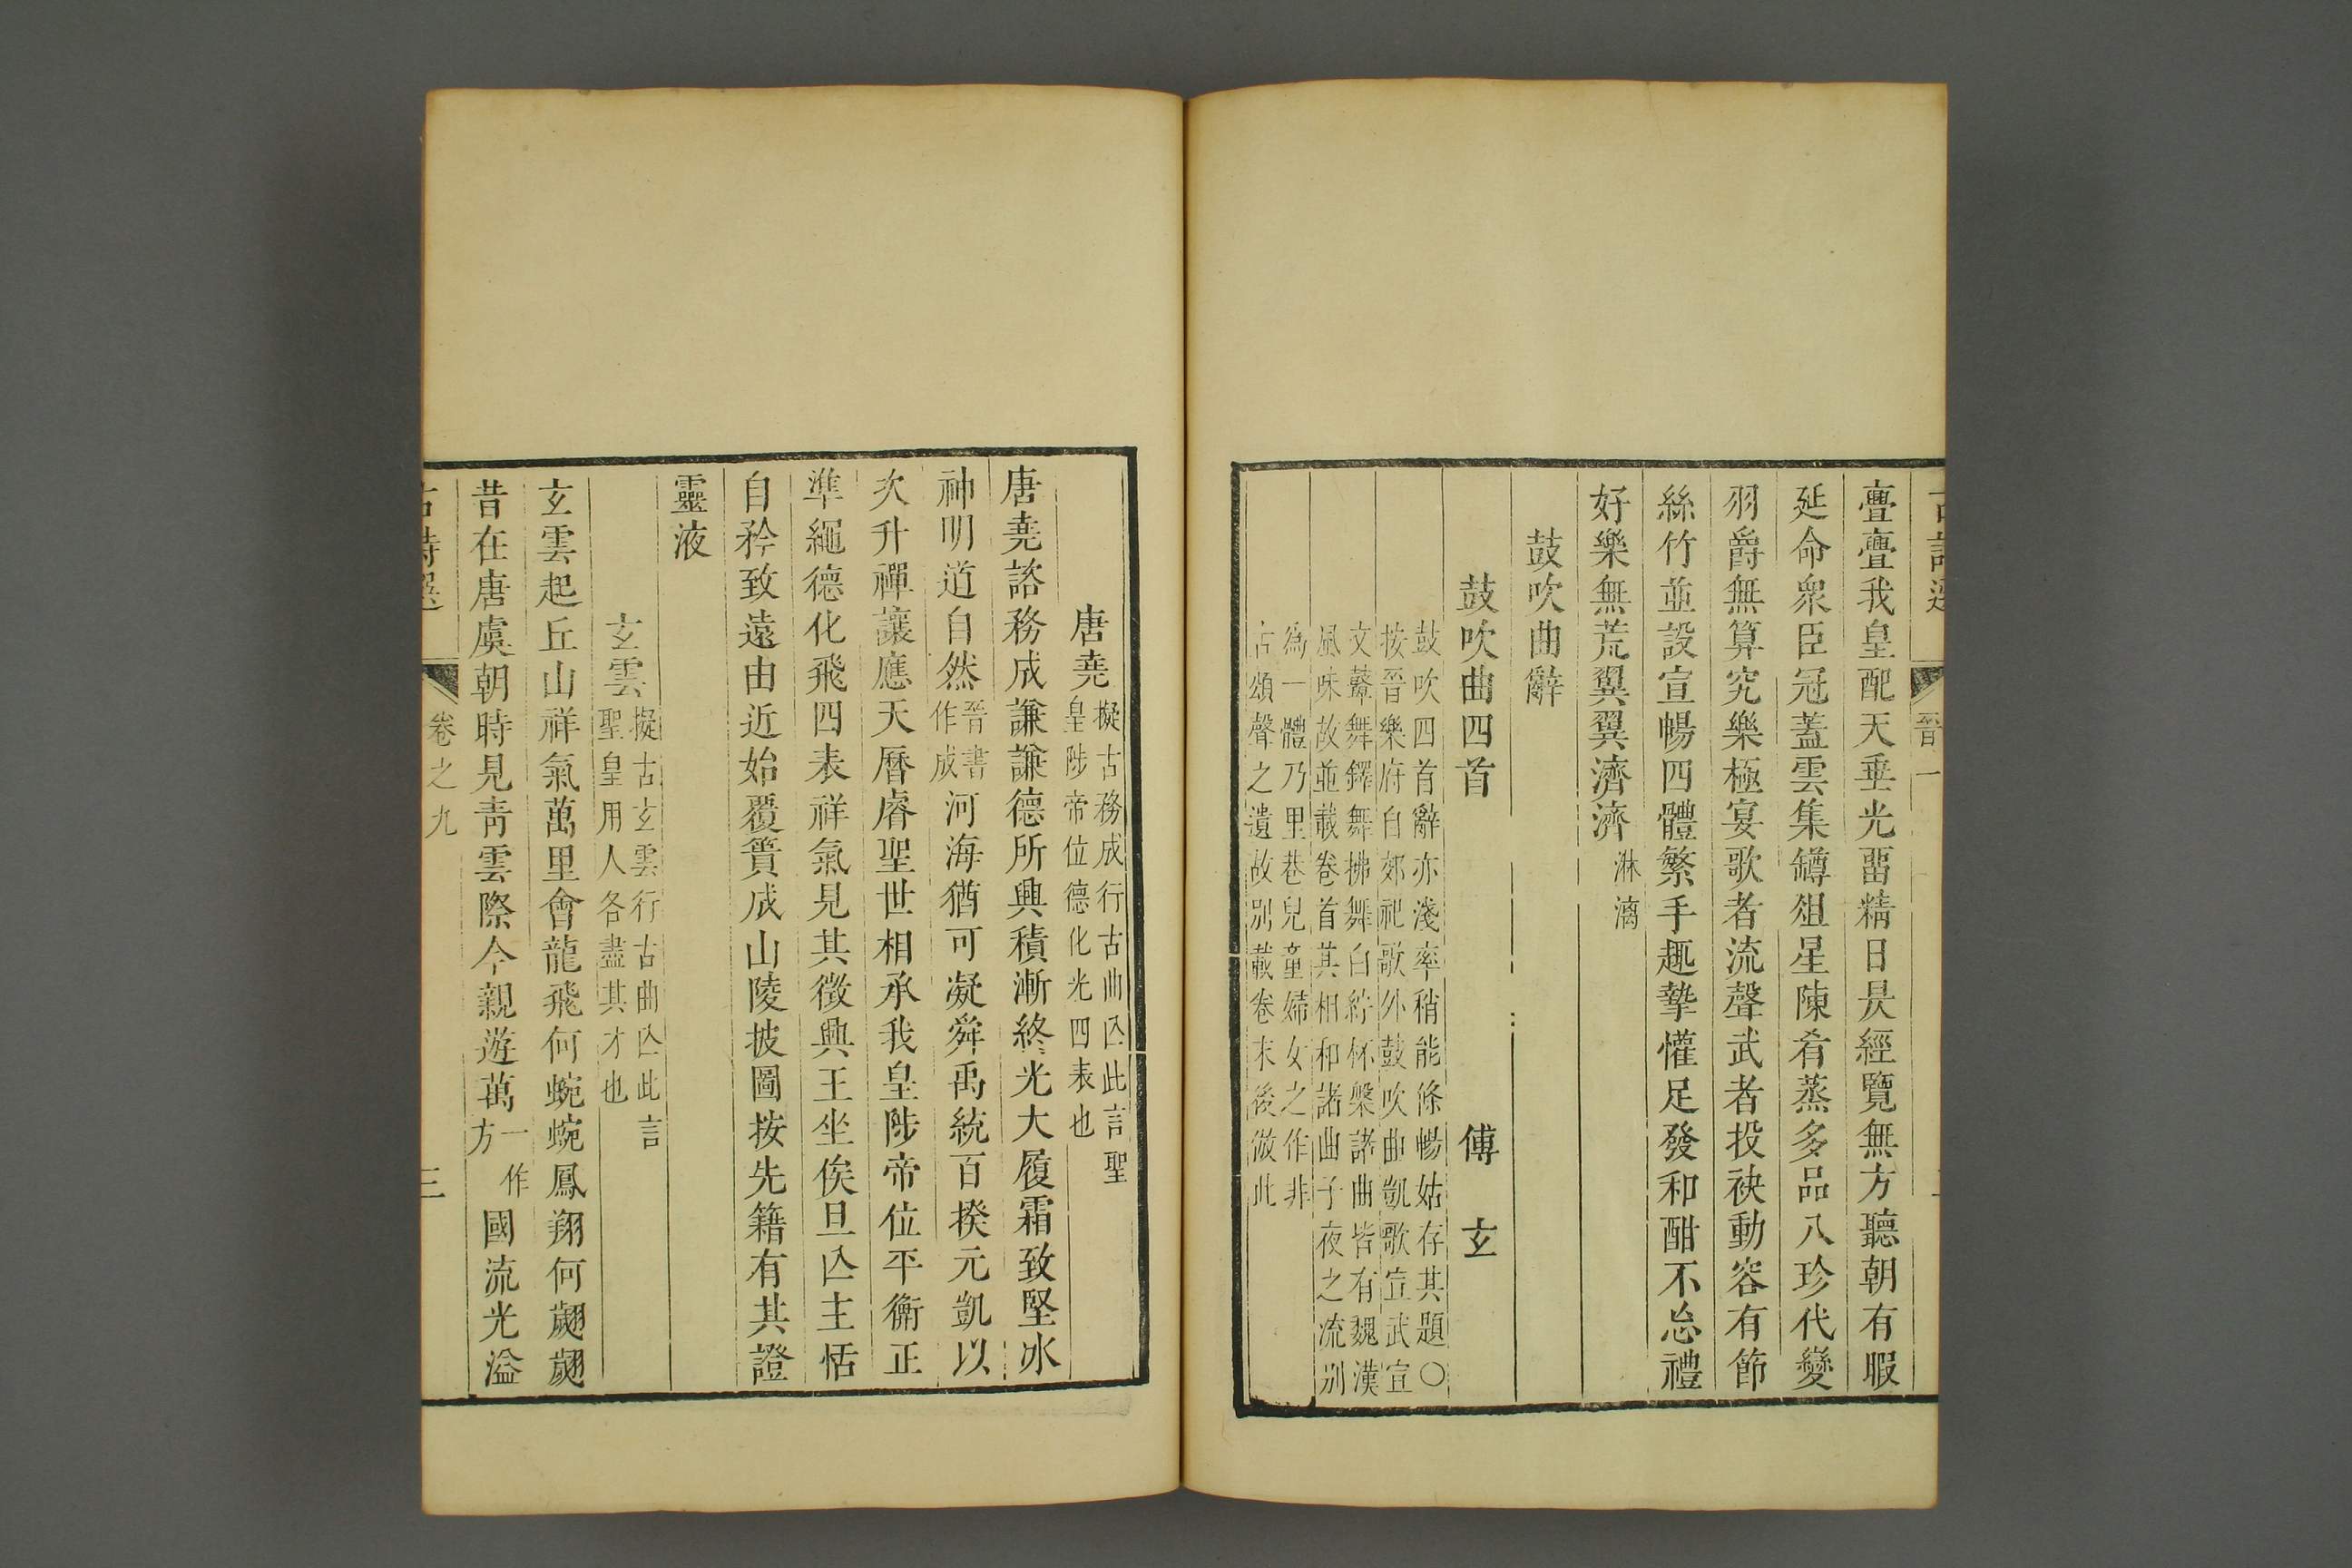 古詩選 晉一
亹亹我皇配天垂光畱精日昃經覽無方聽朝有暇
延命衆臣冠蓋雲集罇俎星陳肴蒸多品八珍代變
羽爵無算究樂極宴歌者流聲武者投袂動容有節
絲竹並設宣暢四體繁手趣摯懽足發和酣不忘禮
好樂無荒翼翼濟濟
淋漓
鼓吹曲辭
鼓吹曲四首 傅玄
鼓吹四首辭亦淺率稍能條暢姑存其題○
按晉樂府自郊祀歌外鼓吹曲凱歌宣武宣
文鼙舞鐸舞拂舞白紵杯槃諸曲皆有魏漢
風味故並載卷首其相和諸曲子夜之流别
為一體乃里巷兒童婦女之作非
古頌聲之遺故别載卷末後倣此
唐堯
擬古務成行古曲亾此言聖
皇陟帝位德化光四表也
唐堯諮務成謙謙德所興積漸終光大履霜致堅冰
神明道自然
晉書
作成
河海猶可凝舜禹統百揆元凱以
次升禪讓應天曆睿聖世相承我皇陟帝位平衡正
準繩德化飛四表祥氣見其徵興王坐俟旦亾主恬
自矜致遠由近始覆簣成山陵披圖按先籍有其證
靈液
玄雲
擬古玄雲行古曲亾此言
聖皇用人各盡其才也
玄雲起丘山祥氣萬里會龍飛何蜿蜿鳳翔何翽翽
昔在唐虞朝時見青雲際今親遊萬
一作
方
國流光溢
古詩選 卷之九 三